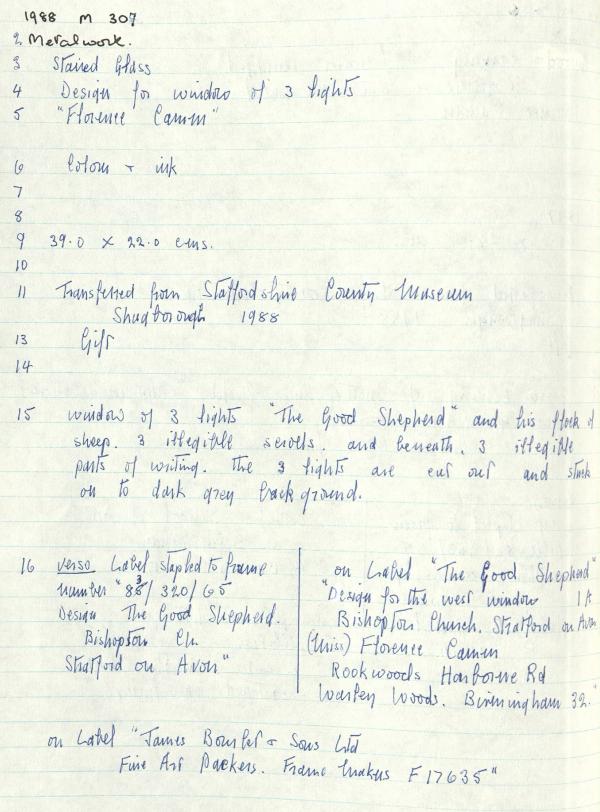 1988 M 307
2 Metalwork.
3 Stained Glass
4 Design for window of 3 lights
5 "Florence Camm"
6 Colour + ink
7
8
9 39.0 x 22.0 cms.
10
11 Transferred from Staffordshire County Museum
Shugborough 1988
13 Gift
14
15 window of 3 lights "The Good Shepherd" and his flock of
sheep. 3 illegible scrolls. and beneath. 3 illegible
parts of writing. The 3 lights are cut out and stuck
on to dark grey background.
16 verso Label stapled to frame
number "83/320/65
Design The Good Shepherd.
Bishopton Ch.
Stratford on Avon"
on Label "The Good Shepherd"
"Design for the west window 1A
Bishopton Church. Stratford on Avon
(Miss) Florence Camm
Rookwoods Harborne Rd
Warley Woods. Birmingham 32."
on Label "James Bourlet + Sons Ltd
Fine Art Packers. Frame Makers F17635"